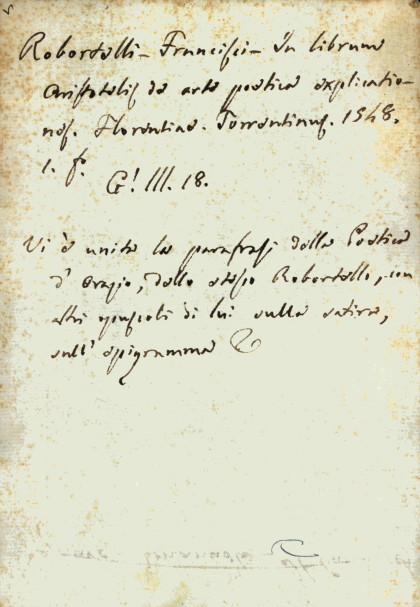 Robortelli - Francisci - In librum
Aristotelis de arte poetica explicatio-
nes. Florentiae. Torrentinus. 1548.
1. f.o
G! III. 18.
Vi è unita la parafrasi della Poetica
d' Orazio, dello stesso Robortello, con
altri opuscoli di lui sulla satira,
sull' epigramma